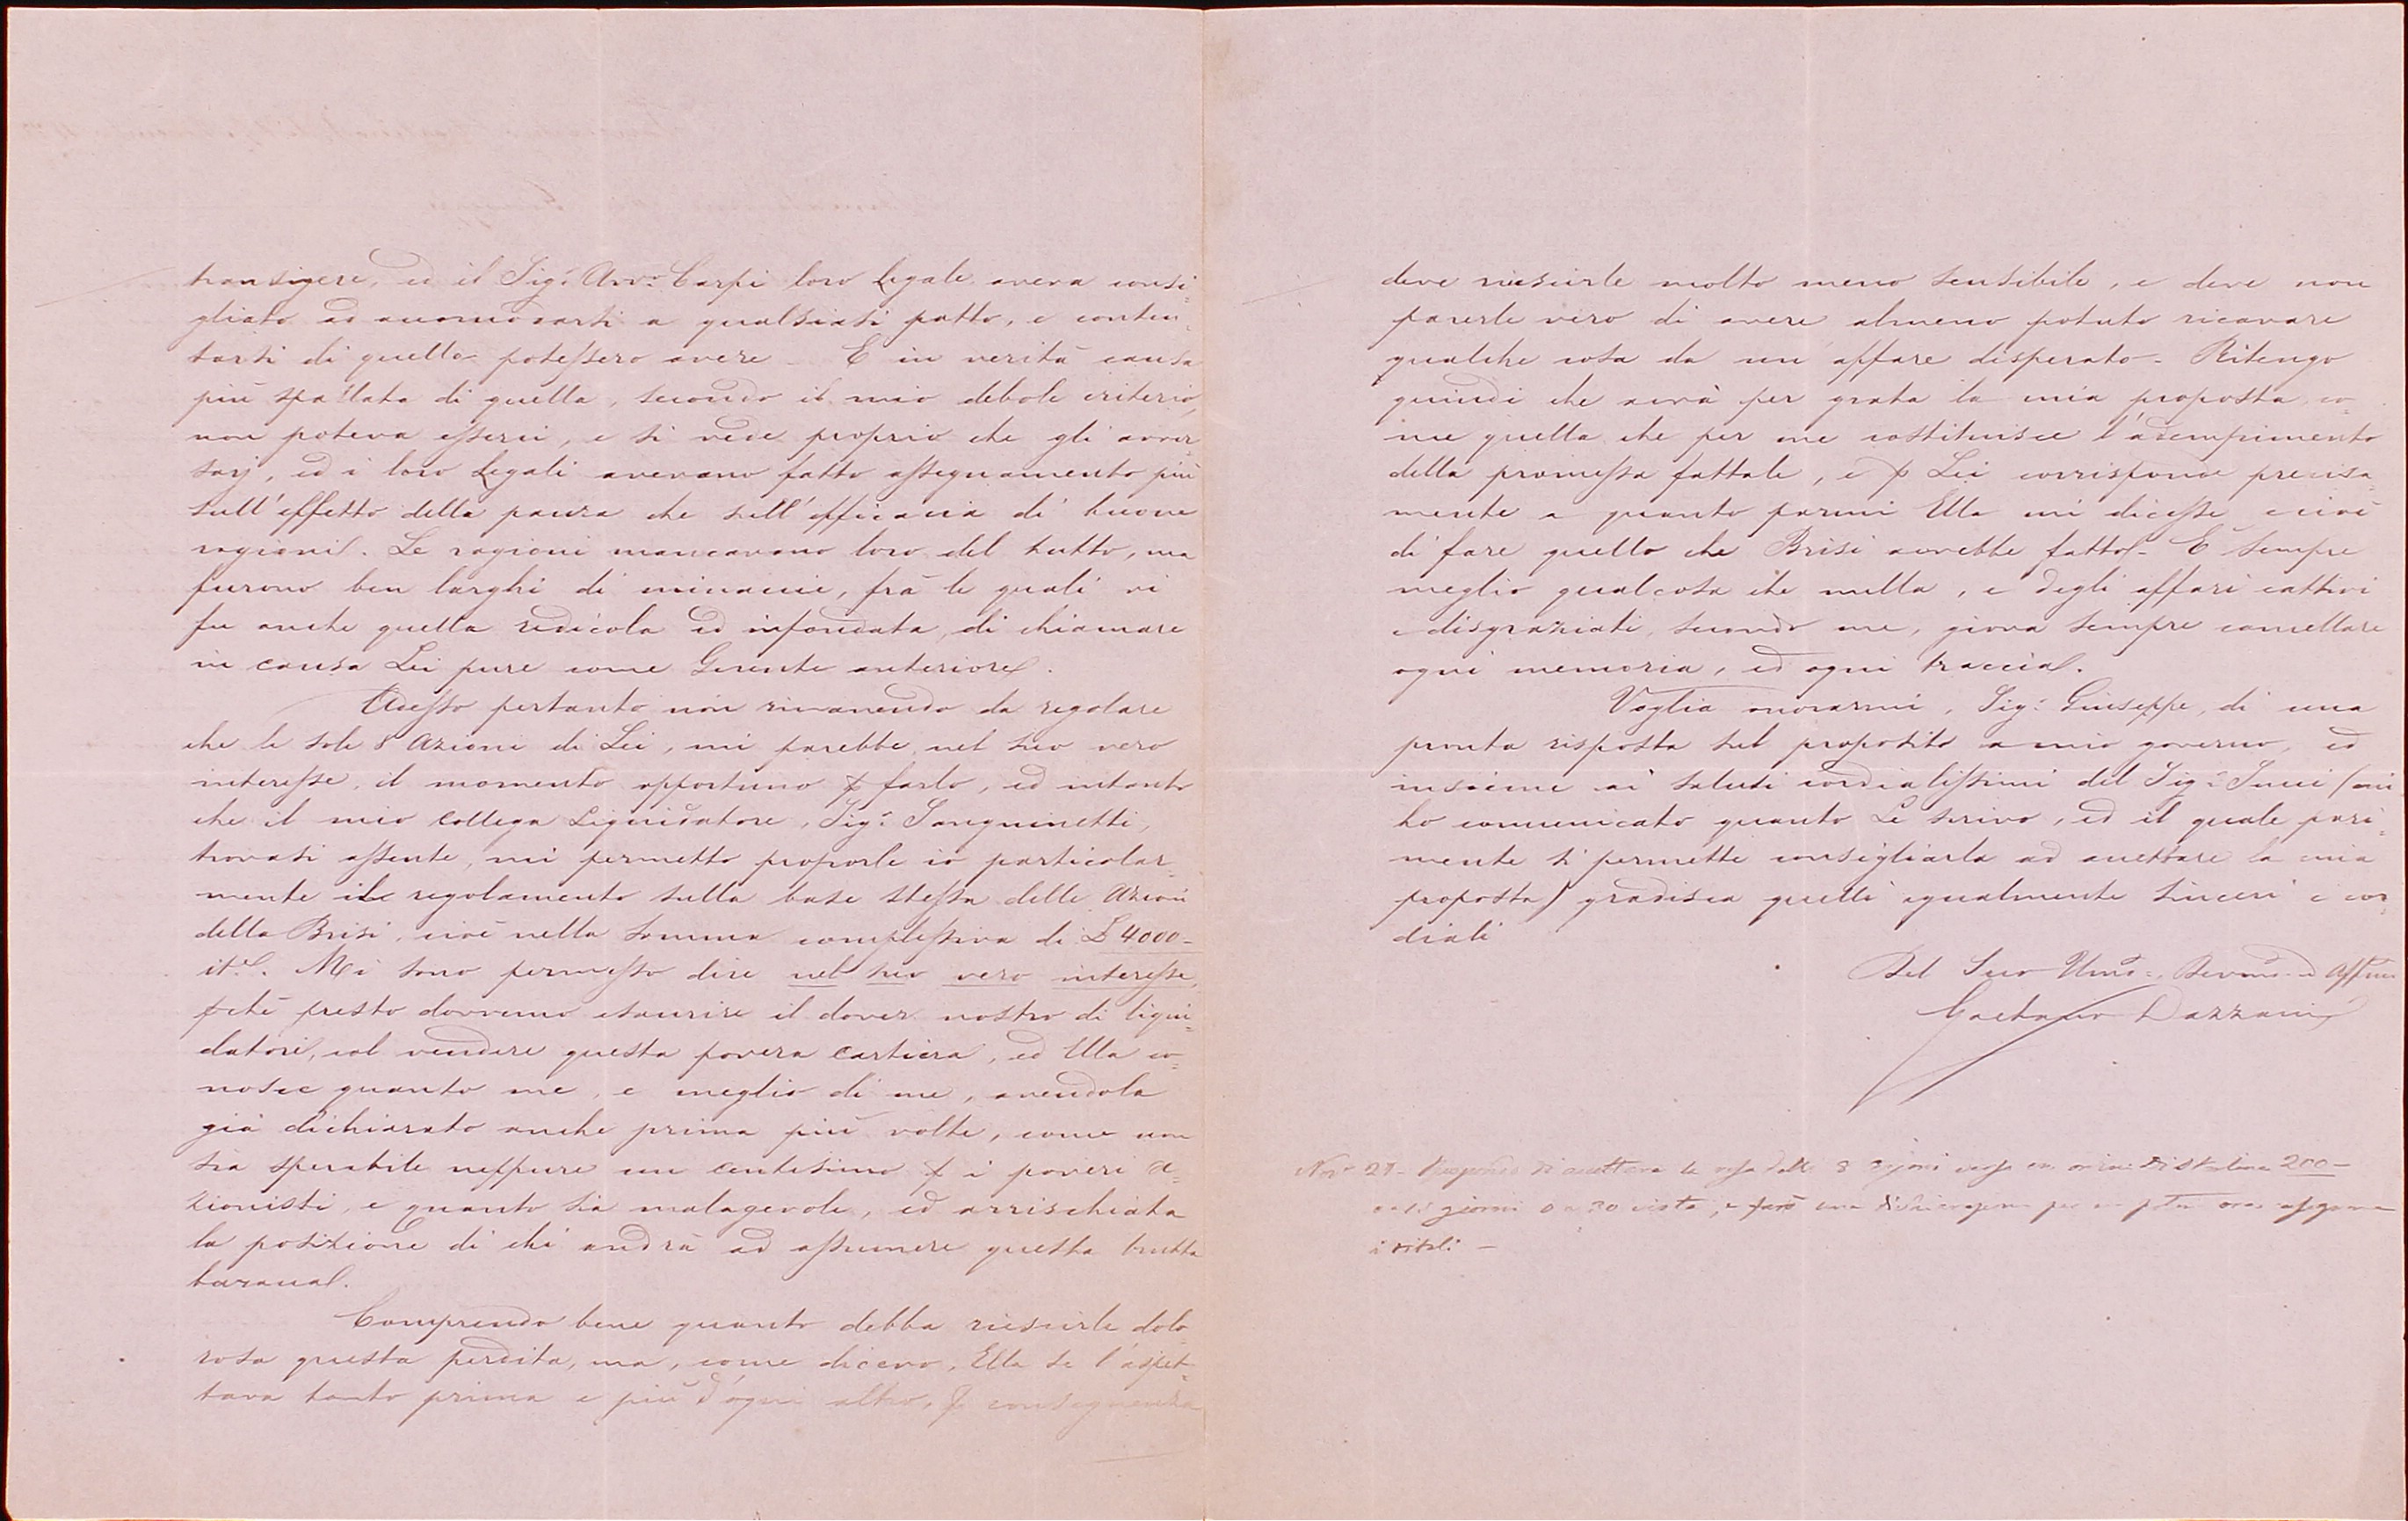 transigere, ed il Sig.r Avv.o Carpi loro Legale aveva consi-
gliato ad accomodarsi a qualsiasi patto, e conten-
tarsi di quello potessero avere _ E in verità causa
più spallata di quella, secondo il mio debole criterio,
non poteva esserci, e si vede proprio che gli avver
sarj, ed i loro Legali avevano fatto assegnamento più
sull'effetto della paura che sull'efficacia di buone
ragioni. Le ragioni mancavano loro del tutto, ma
furono ben larghi di minaccie, frà le quali vi
fu anche quella redicola ed infondata, di chiamare
in causa Lei pure come Gerente anteriore.
Adesso pertanto non rimanendo da regolare
che le sole 8 Azioni di Lei, mi parebbe nel suo vero
interesse, il momento opportuno p farlo, ed intanto
che il mio Collega Liquidatore, Sig.r Sanguinetti,
trovasi assente, mi permetto proporle io particolar-
mente il regolamento sulla base stessa delle Azioni
della Brisi, cioè nella somma complessiva di £ 4000 -
it.e. Mi sono permesso dire nel suo vero interesse,
pchè presto dovremo esaurire il dover nostro di liqui-
datori, col vendere questa povera Cartiera, ed Ella co-
nosce quanto me, e meglio di me, avendola
già dichiarato anche prima più volte, come non
sia sperabile neppure un centesimo p i poveri A-
zionisti, e quanto sia malagevole, ed arrischiata
la posizione di chi andrà ad assumere questa brutta
buzana.
Comprendo bene quanto debba riescirle dolo
rosa questa perdita, ma, come dicevo, Ella se l'aspet-
tava tanto prima e più d'ogni altro, p conseguenza
deve riescirle molto meno sensibile, e deve non
parerle vero di avere almeno potuto ricavare
qualche cosa da un affare disperato - Ritengo
quindi che avrà per grata la mia proposta co-
me quella che per me costituisce l'adempimento
della promessa fattale, e p Lei corrisponde precisa-
mente a quanto parmi Ella mi dicesse cioè
di fare quello che Brisi avrebbe fatto - È sempre
meglio qualcosa che nulla, e degli affari cattivi
e disgraziati, secondo me, giova sempre cancellare
ogni memoria, ed ogni traccia.
Voglia onorarmi, Sig.r Giuseppe, di una
pronta risposta sul proposito a mio governo, ed
insieme ai saluti cordialissimi del Sig.r Succi (cui
ho comunicato quanto Le scrivo, ed il quale pari-
mente si permette consigliarla ad accettare la mia
proposta) gradisca quelli egualmente sinceri e cor-
diali
Del Suo Umo. Devmo ed Affmo
Gaetano Dazzani
Nov. 28 - di accettare le 8 azioni 200 -
giorni 30 vista, e farò una per
i titoli -